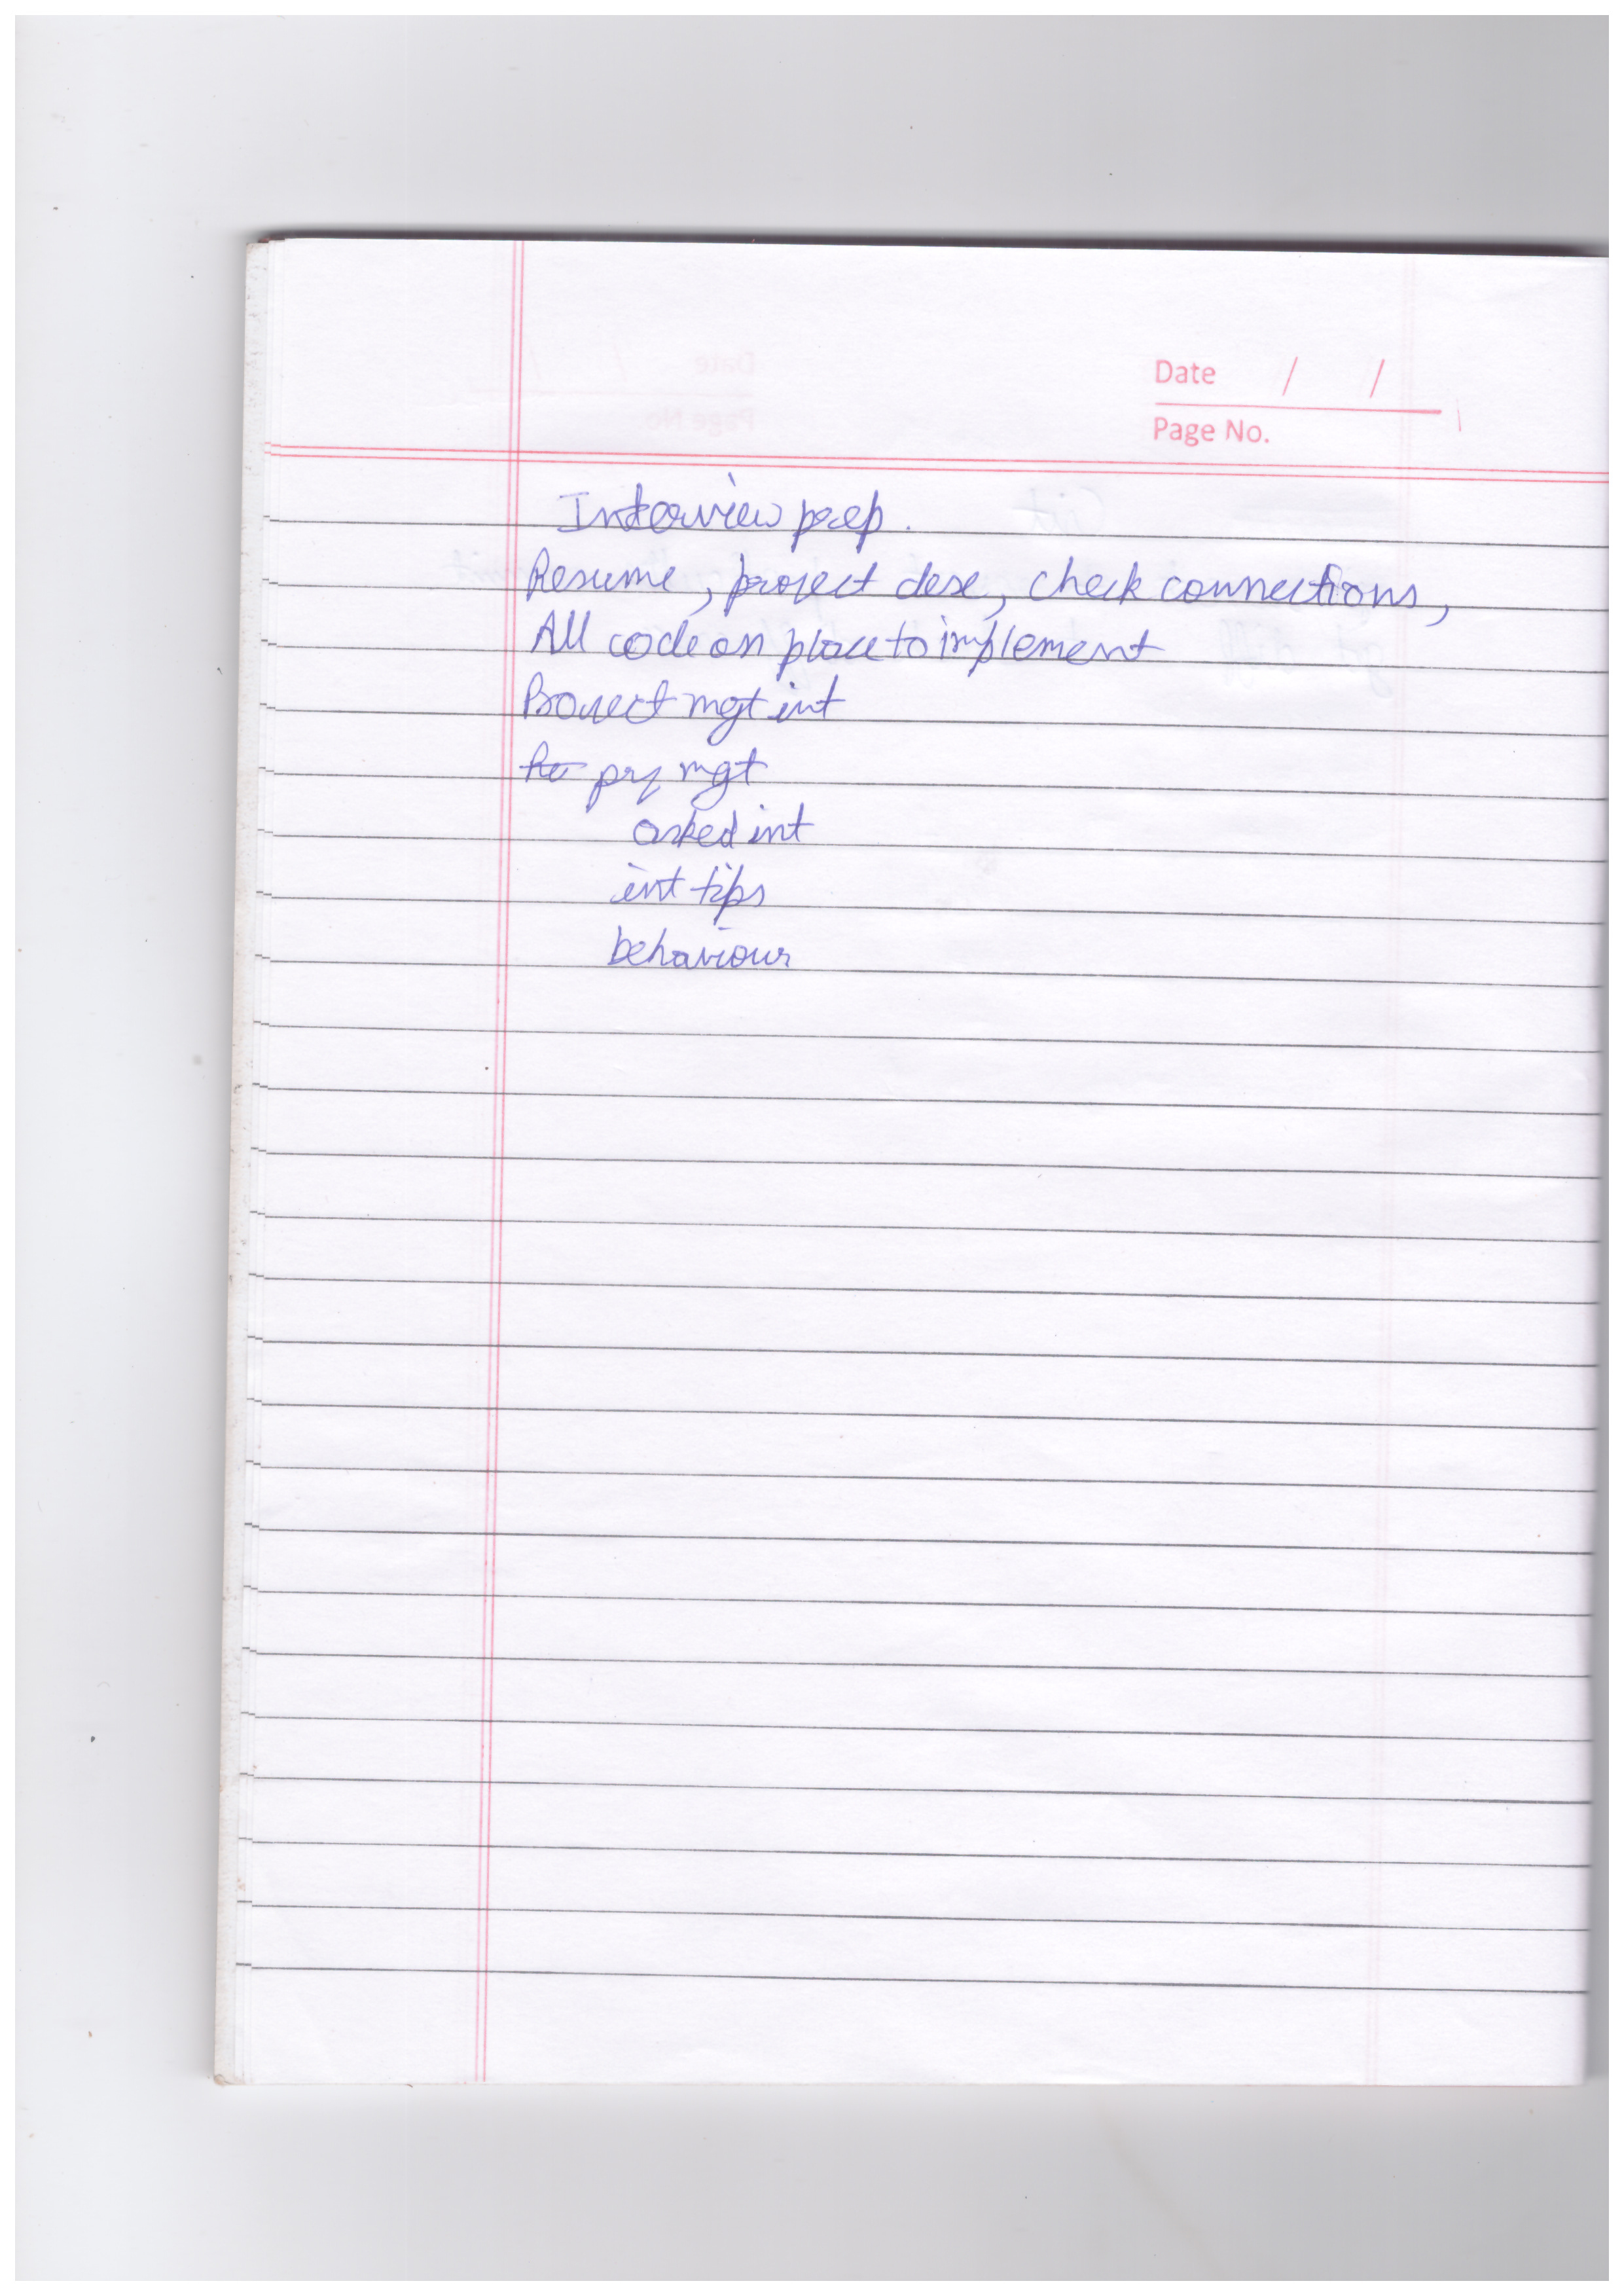 Date / /
Page No.
Interview prep.
Resume, project desc, check connections,
All code on place to implement
Project mgt int
prj mgt
asked int
int tips
behaviour